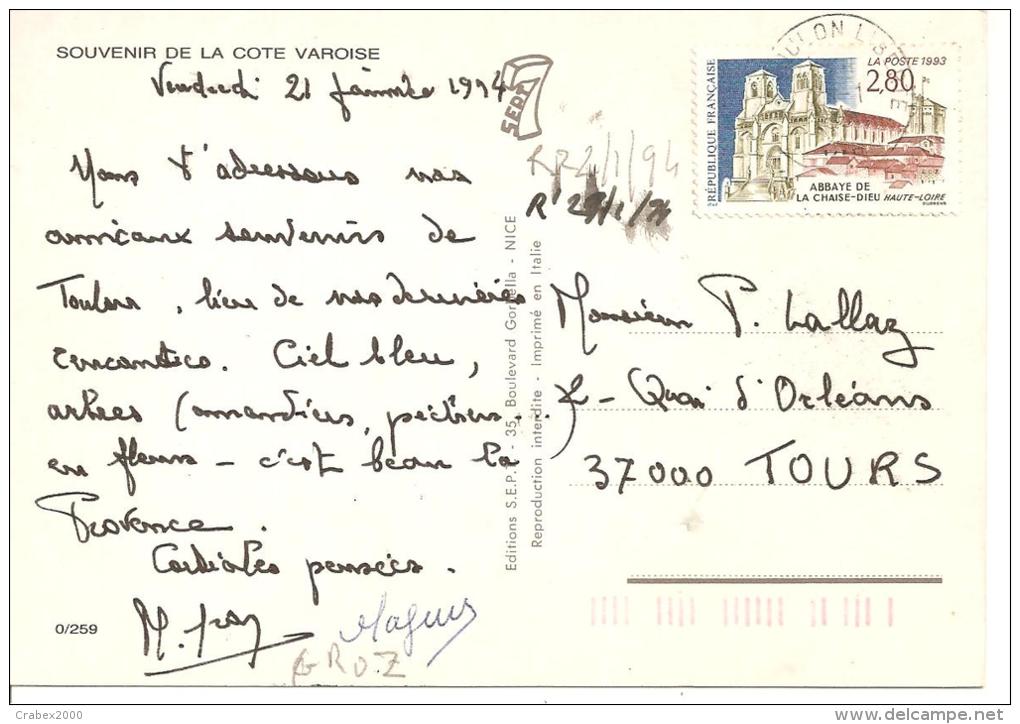 SOUVENIR DE LA COTE VAROISE
Vendredi 21 janvier 1994
Nous t'adressons nos
amicaux souvenirs de
Toulon, lieu de nos dernières
rencontres. Ciel bleu,
arbres (amandiers, pêchers...
en fleurs - c'est beau la
Provence.
Cordiales pensées.
0/259
GROZ
SEPT
RR 2/1/94
R
Editions S.E.P.T. - 35, Boulevard Gorbella - NICE
Reproduction interdite - Imprimé en Italie
TOULON LIBERTE
RÉPUBLIQUE FRANÇAISE
LA POSTE 1993
2,80
ABBAYE DE
LA CHAISE-DIEU HAUTE-LOIRE
Monsieur P. Lallaz
Quai d'Orléans
37000 TOURS
Crabex2000
www.delcampe.net